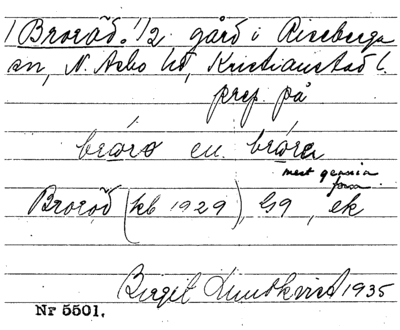 1 Broröd. 1/2 gård i Riseberga
sn, N. Åsbo hd, Kristianstad l.
prep. på
en.
mest gamla
form.
Broröd (kb 1929), G9, ek
Birgit Lundkvist 1935
Nr 5501.